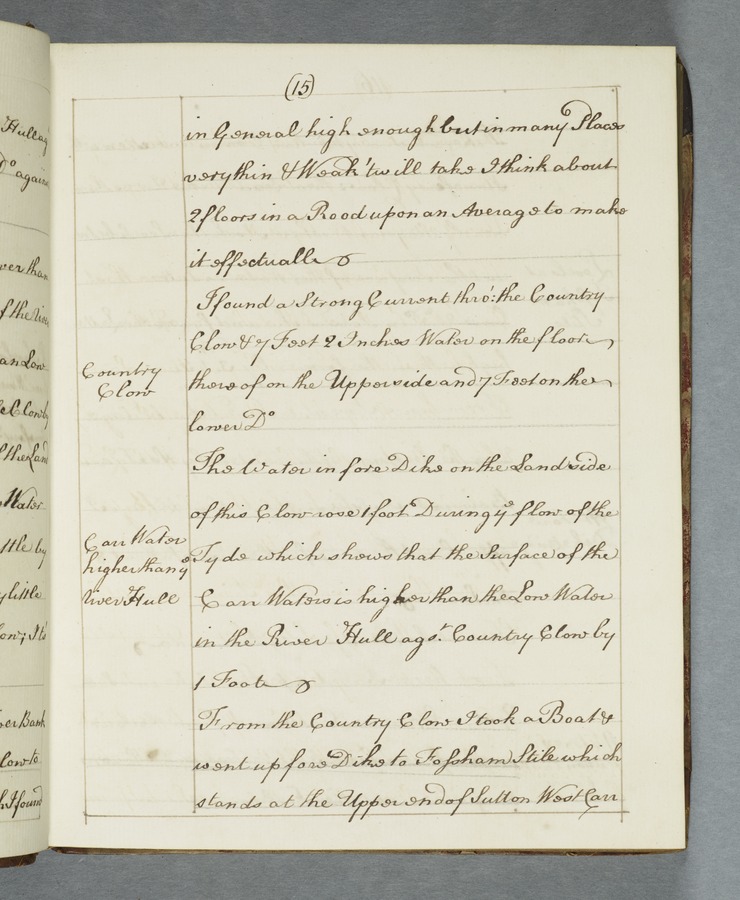 (15)
in General high enough but in many Places
very thin & Weak 'twill take I think about
2 floors in a Rood upon an Average to make
it effectuall
I found a Strong Current thro': the Country
Clow & 7 Feet 2 Inches Water on the floor
thereof on the Upperside and 7 Feet on the
lower Do
Country
Clow
The Water in fore Dike on the Land side
of this Clow rose 1 foot During ye flow of the
Tyde which shews that the Surface of the
Carr Waters is higher than the Low Water
in the River Hull agst. Country Clow by
1 Foot
Carr Water
higher than ye
River Hull
From the Country Clow I took a Boat &
went up fore Dike to Fossham Stile which
stands at the Upper end of Sutton West Carr
Hull ag
Do again
ver than
f the River
an Low
e Clow by
f the Land
Water
ttle by
y little
ow; Its
ver Bank
low to
h I found